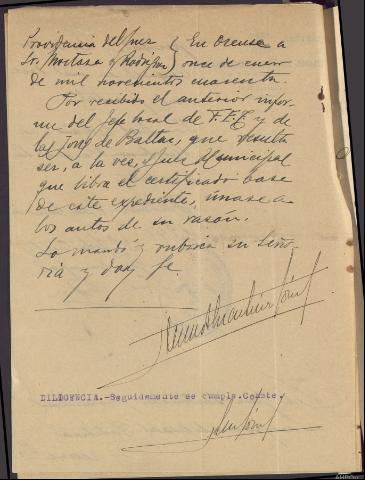 Providencia del Juez } En Orense a
Sr. Montana y Rodríguez } once de enero
de mil novecientos cuarenta.
Por recibido el anterior infor-
me del Jefe local de F.E.T. y de
las Jons de Baltar, que resulta
ser, a la vez, el Juez Municipal
que libra el certificado base
de este expediente, únase a
los autos de su razon.
Lo mandó y rubrica su Seño-
ria y doy fe.
DILIGENCIA.-Seguidamente se cumple.Conste.